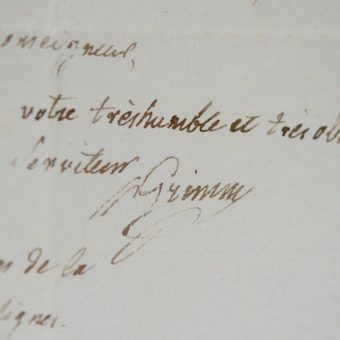 Monseigneur,
votre très humble et très ob
Serviteur
Grimm
de la